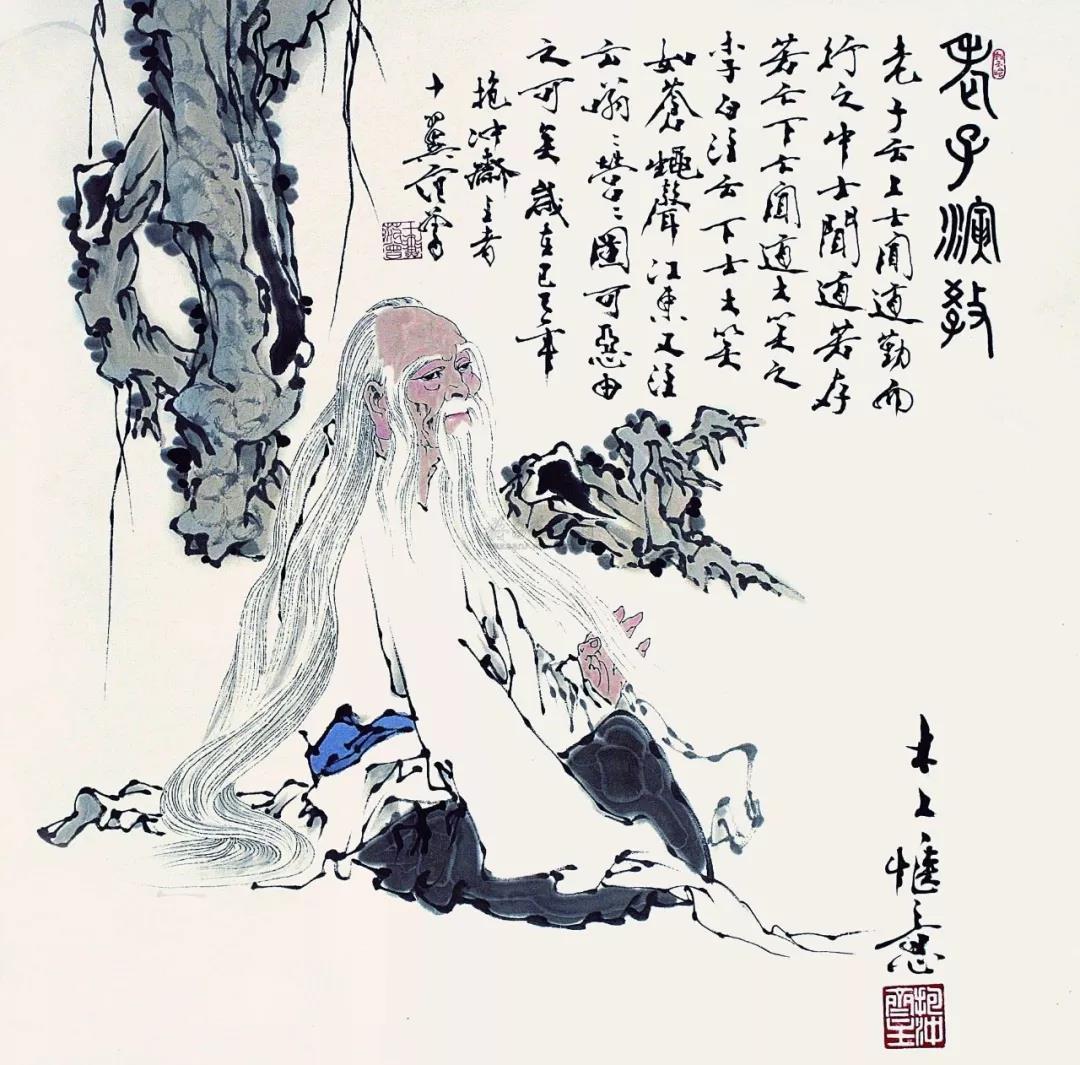 老子演教
老子云上士闻道勤而
行之中士闻道若存
若亡下士闻道大笑之
李白注云下士大笑
如苍蝇聲江东又注
云嗡嗡嘤嘤固可恶由
之可矣岁在己巳年
抱冲斋主者
十翼范曾
抱冲斋主